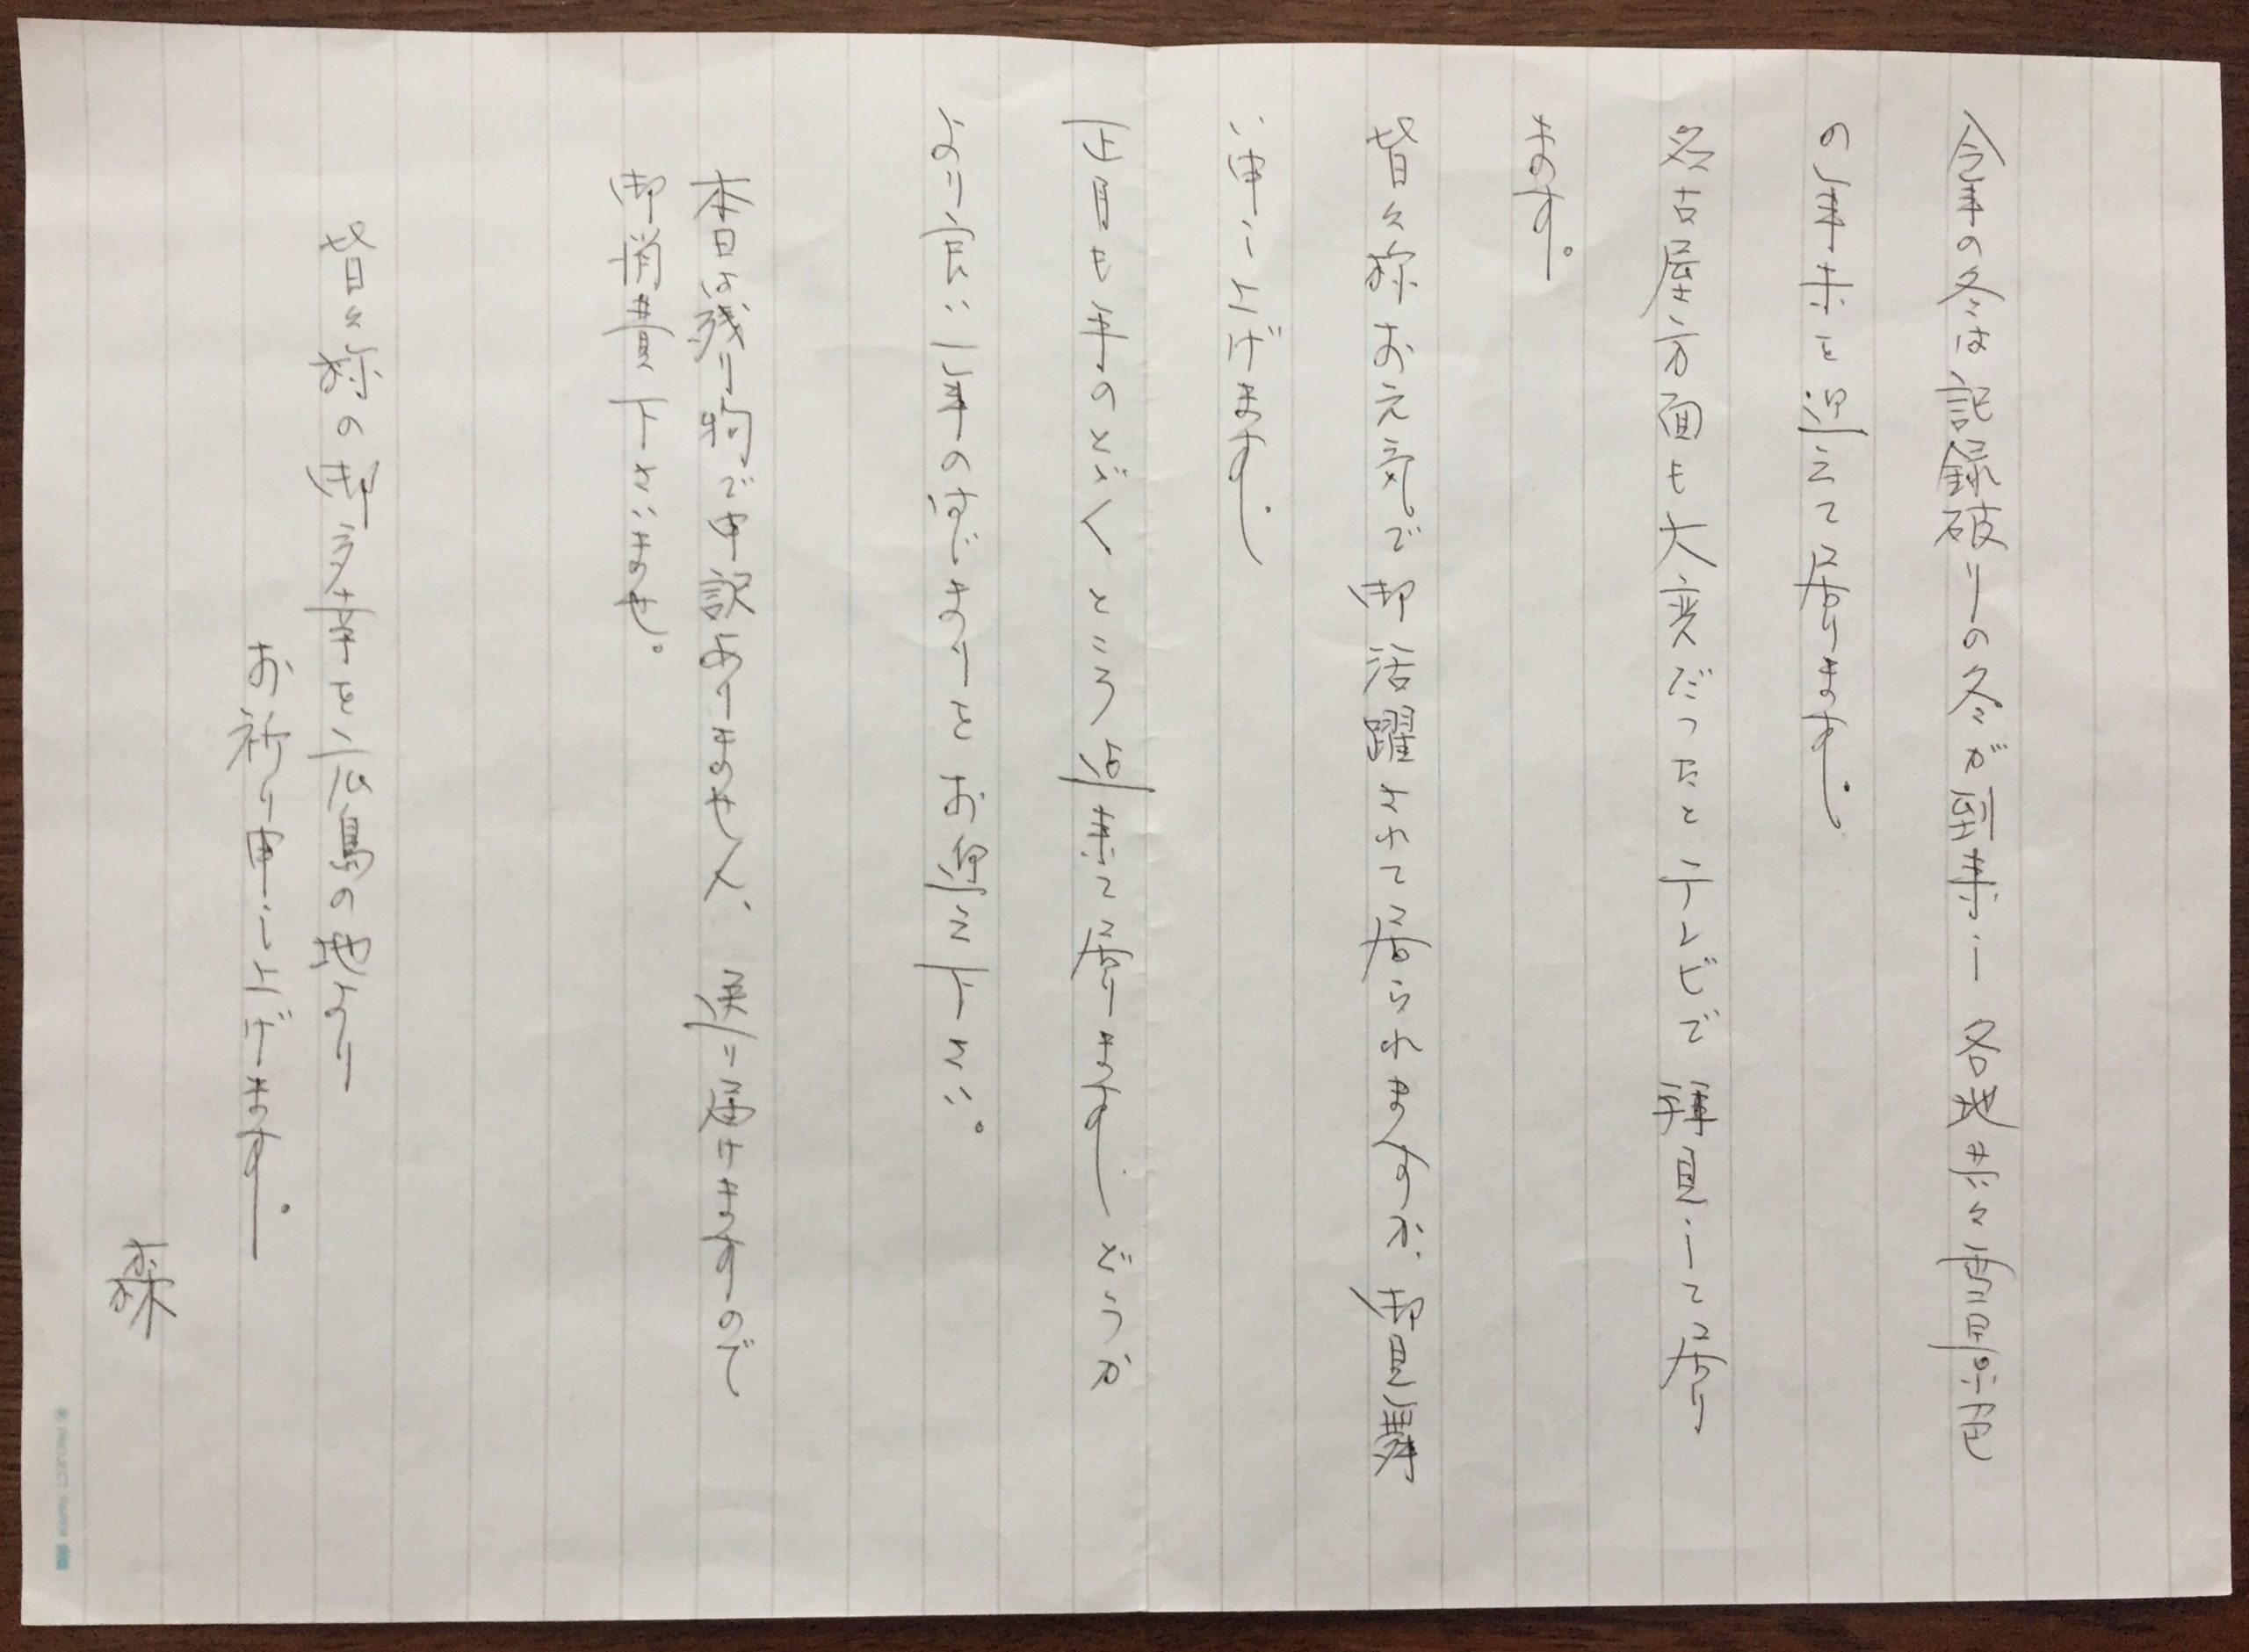 今年の冬は記録破りの冬が到来し各地共々雪景色
の年末と迎えて居ります。
名古屋方面も大変だったとテレビで拝見して居り
ます。
皆々様お元気で御活躍されて居られますのか御見舞
い申し上げます。
正月も手のとどくところ迄来て居りますどうか
より良い年の始まりとお迎え下さい。
本日は残り物で申訳ありませんが、送り届けますので
御消費下さいませ。
皆々様の御多幸を広島の地より
お祈り申し上げます。
森